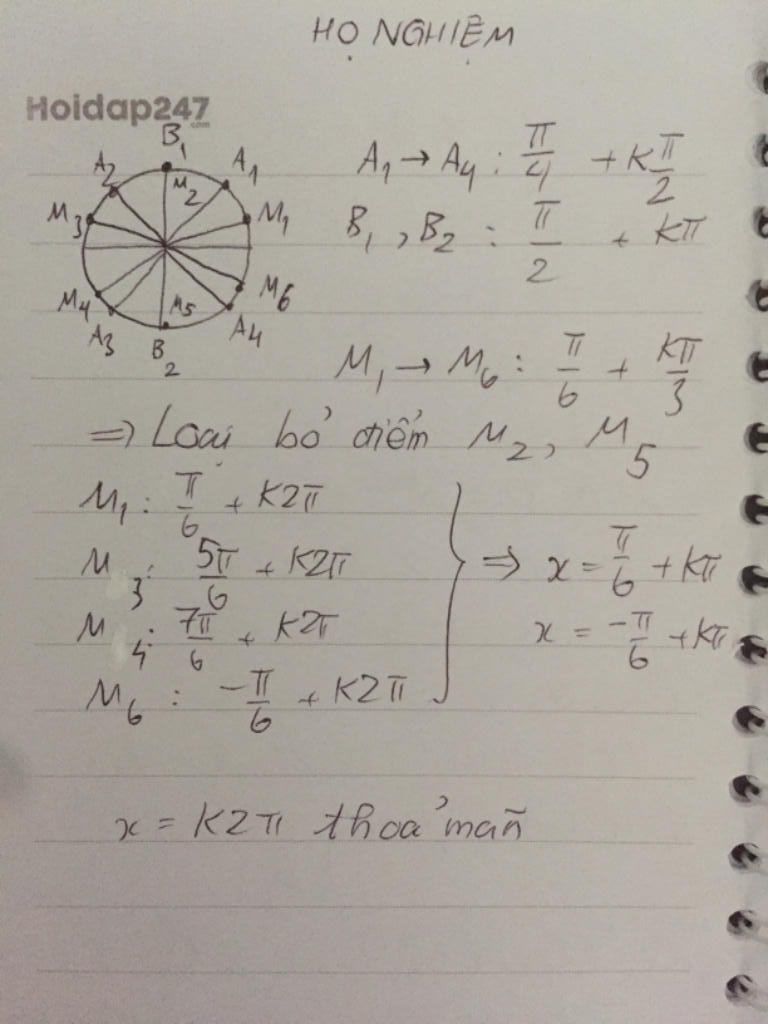 HỌ NGHIỆM
Hoidap247
.com
B₁
A₂ A₁
M₂
M₃ M₁
M₄ M₅ M₆
A₃ A₄
B₂
A₁ → A₄ : π/4 + Kπ/2
B₁, B₂ : π/2 + Kπ
M₁ → M₆ : π/6 + Kπ/3
⇒ Loại bỏ điểm M₂, M₅
M₁ : π/6 + K2π
M₃ : 5π/6 + K2π
M₄ : 7π/6 + K2π
M₆ : -π/6 + K2π
⇒ x = π/6 + Kπ
x = -π/6 + Kπ
x = K2π thoả mãn